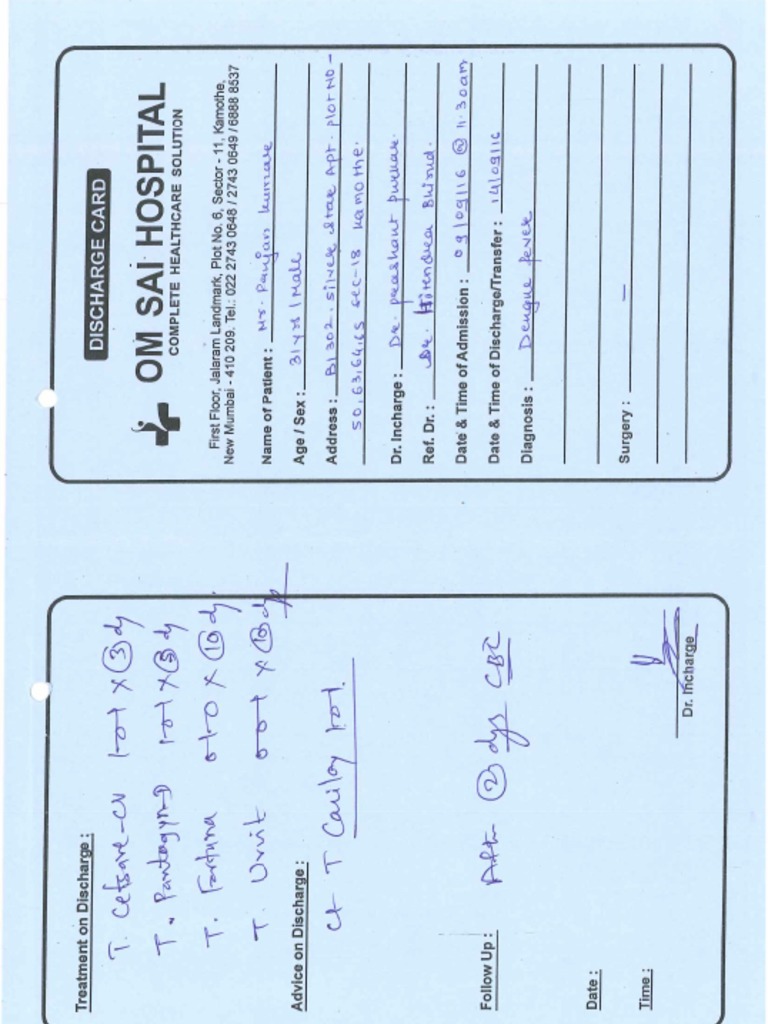 DISCHARGE CARD
OM SAI HOSPITAL
COMPLETE HEALTHCARE SOLUTION
First Floor, Jalaram Landmark, Plot No. 6, Sector - 11, Kamothe,
New Mumbai - 410 209. Tel.: 022 2743 0648 / 2743 0649 / 6888 8537
Name of Patient : Mr. Punjan kumare
Age / Sex : 31 yrs / Male
Address : B1302. silver star Apt. plot NO-
50,63,64,65 sec-18 kamothe.
Dr. Incharge : Dr. prashant purkar.
Ref. Dr. : Dr. Hitendra Bhirud.
Date & Time of Admission : 09/09/16 @ 11.30am
Date & Time of Discharge/Transfer : 14/09/16
Diagnosis : Dengue fever
Surgery : —
Treatment on Discharge :
T. Cefsave-CV 1-0-1 x ③ dy
T. Pantagyn-D 1-0-1 x ⑤ dy
T. Fortuna 0-1-0 x ⑩ dy.
T. Urvit 0-0-1 x ⑩ dys
Advice on Discharge :
Ct T Carilay 1-0-1.
Follow Up : After ② dys CBC
Date :
Time :
Dr. Incharge